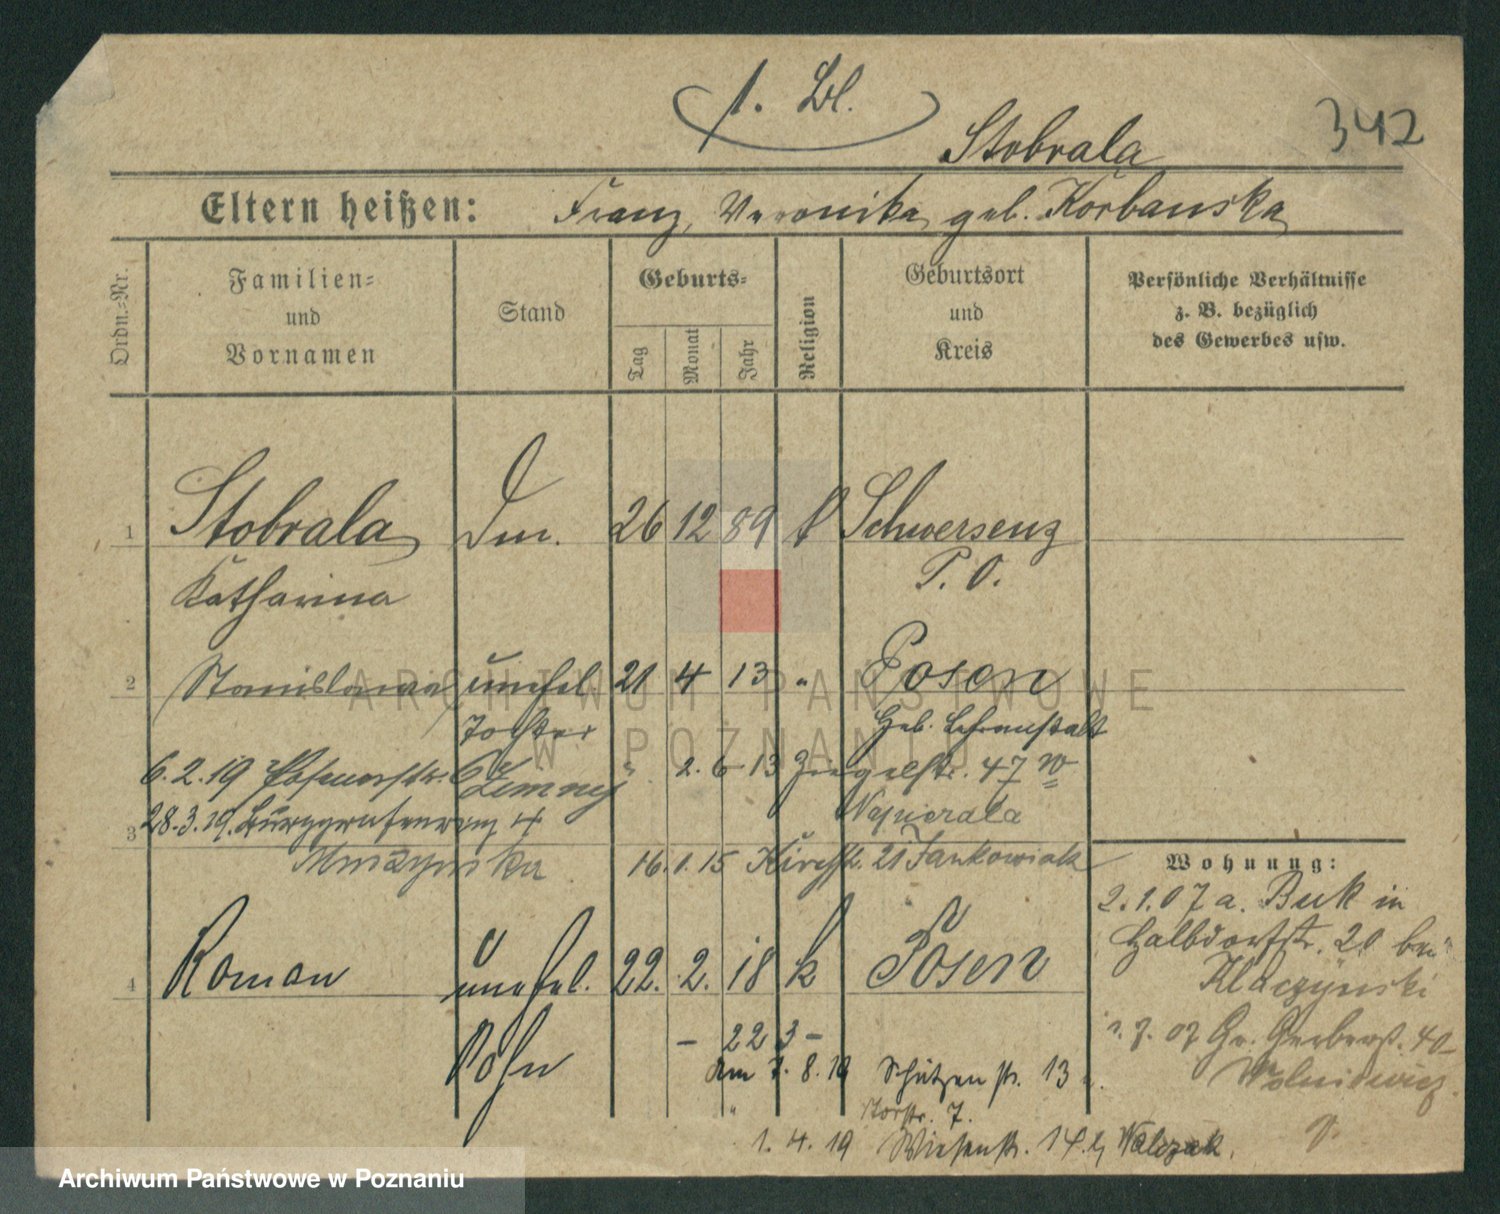 1. Bl.
342
Stobrala
Eltern heißen: Franz, Veronika geb. Korbanska
Ordn.-Nr.
Familien-
und
Vornamen
Stand
Geburts-
Tag
Monat
Jahr
Religion
Geburtsort
und
Kreis
Persönliche Verhältnisse
z. B. bezüglich
des Gewerbes usw.
1 Stobrala Dm. 26 12 89 k Schwersenz
Katharina P. O.
2 Stanislawa unehel 21 4 13 " Posen
Tochter Heb. Lehranstalt
6.2.19 2. 6 13 47
Zimny
28.3.19. 4 Napierala
3
16. 1. 15 21 Jankowiak
Wohnung:
2.1.07 a. Buk in
Halbdorfstr. 20 bei
Klaczynski
4 Roman unehel. 22. 2. 18 k Posen
Sohn
- 22 3 -
Gr. Gerberst. 40
Wolniewicz
am 7. 8. 18 Schützenstr. 13
Torstr. 7.
1. 4. 19 Wiesenstr. 14 b/ Walczak.
ARCHIWUM PAŃSTWOWE
W POZNANIU
Archiwum Państwowe w Poznaniu